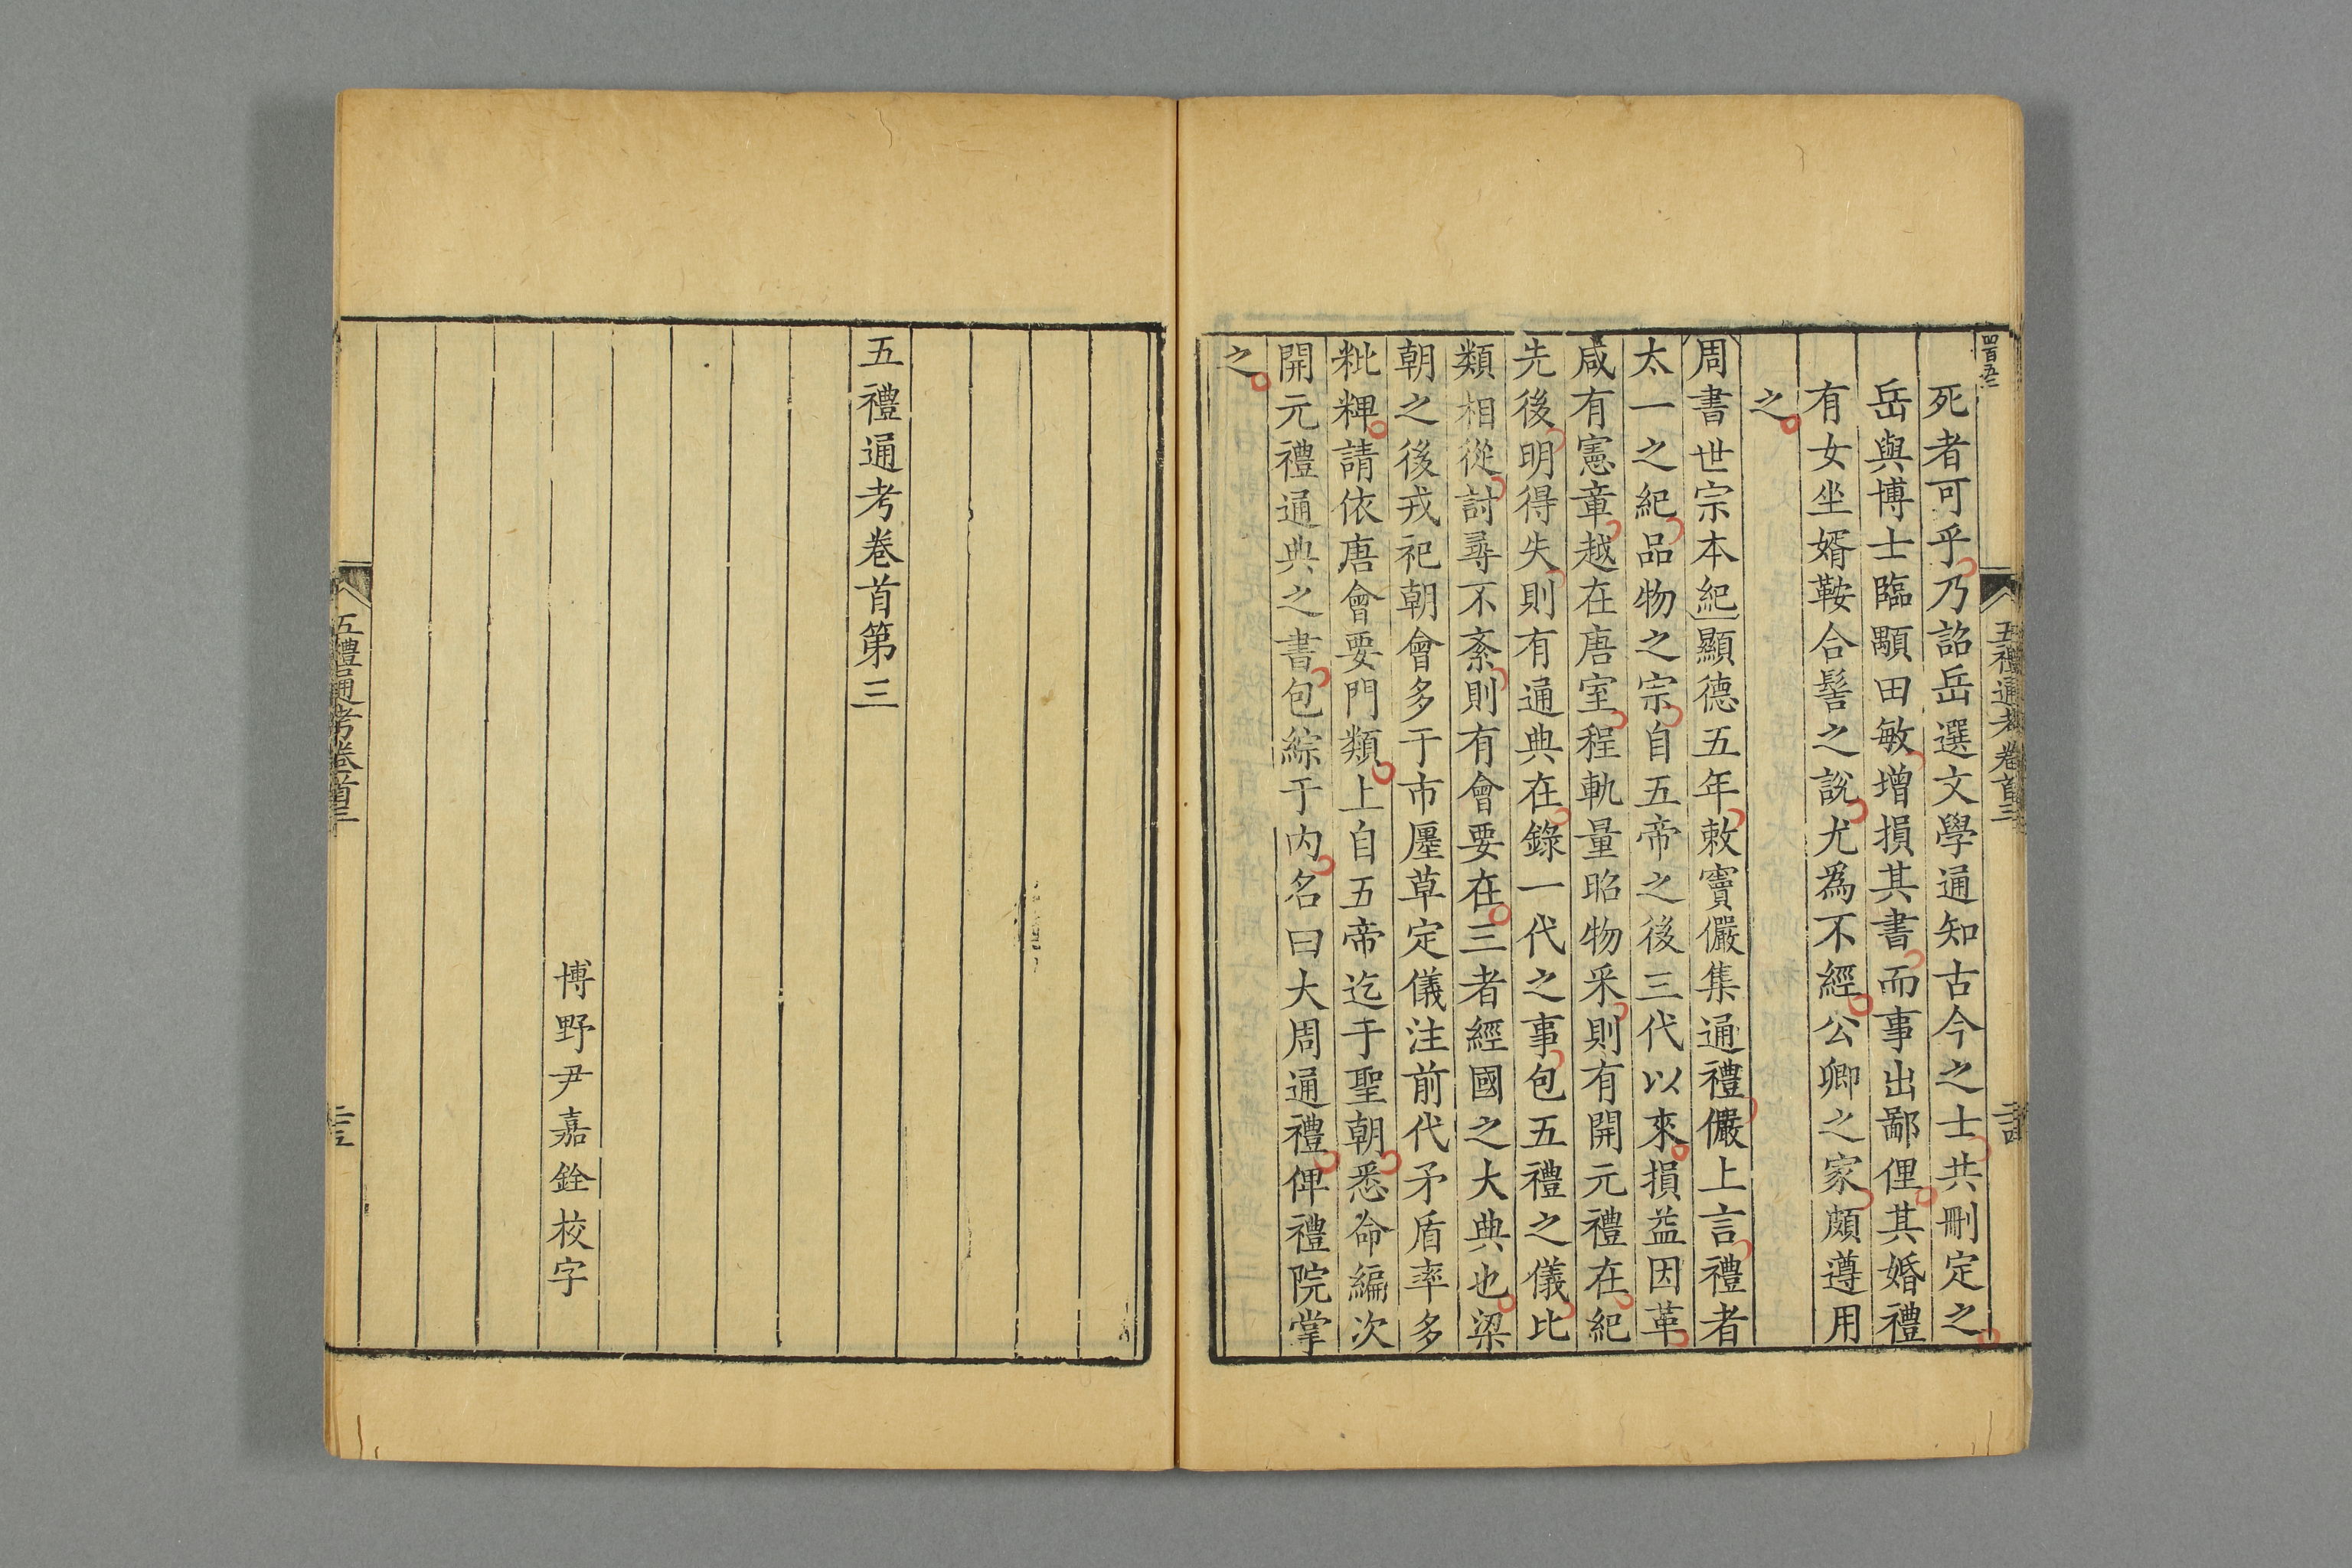 死者可乎乃詔岳選文學通知古今之士共刪定之
岳與博士臨顒田敏增損其書而事出鄙俚其婚禮
有女坐婿鞍合髻之說尤爲不經公卿之家頗遵用
之
周書世宗本紀顯德五年敕竇儼集通禮儼上言禮者
太一之紀品物之宗自五帝之後三代以來損益因革
咸有憲章越在唐室程軌量昭物采則有開元禮在紀
先後明得失則有通典在錄一代之事包五禮之儀比
類相從討尋不紊則有會要在三者經國之大典也梁
朝之後戎祀朝會多于市廛草定儀注前代矛盾率多
粃粺請依唐會要門類上自五帝迄于聖朝悉命編次
開元禮通典之書包綜于內名曰大周通禮俾禮院掌
之
五禮通考卷首三
五禮通考卷首第三
博野尹嘉銓校字
五禮通考卷首三